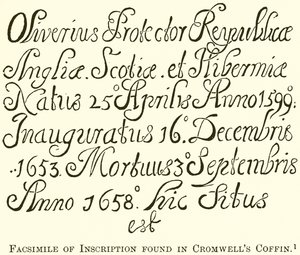 Oliverius Protector Reipublicæ
Angliæ. Scotiæ. et Hiberniæ
Natus 25º Aprilis Anno 1599º:
Inauguratus 16º. Decembris
.1653. Mortuus 3º Septembris
Anno 1658º. hic Situs
est
FACSIMILE OF INSCRIPTION FOUND IN CROMWELL'S COFFIN.¹